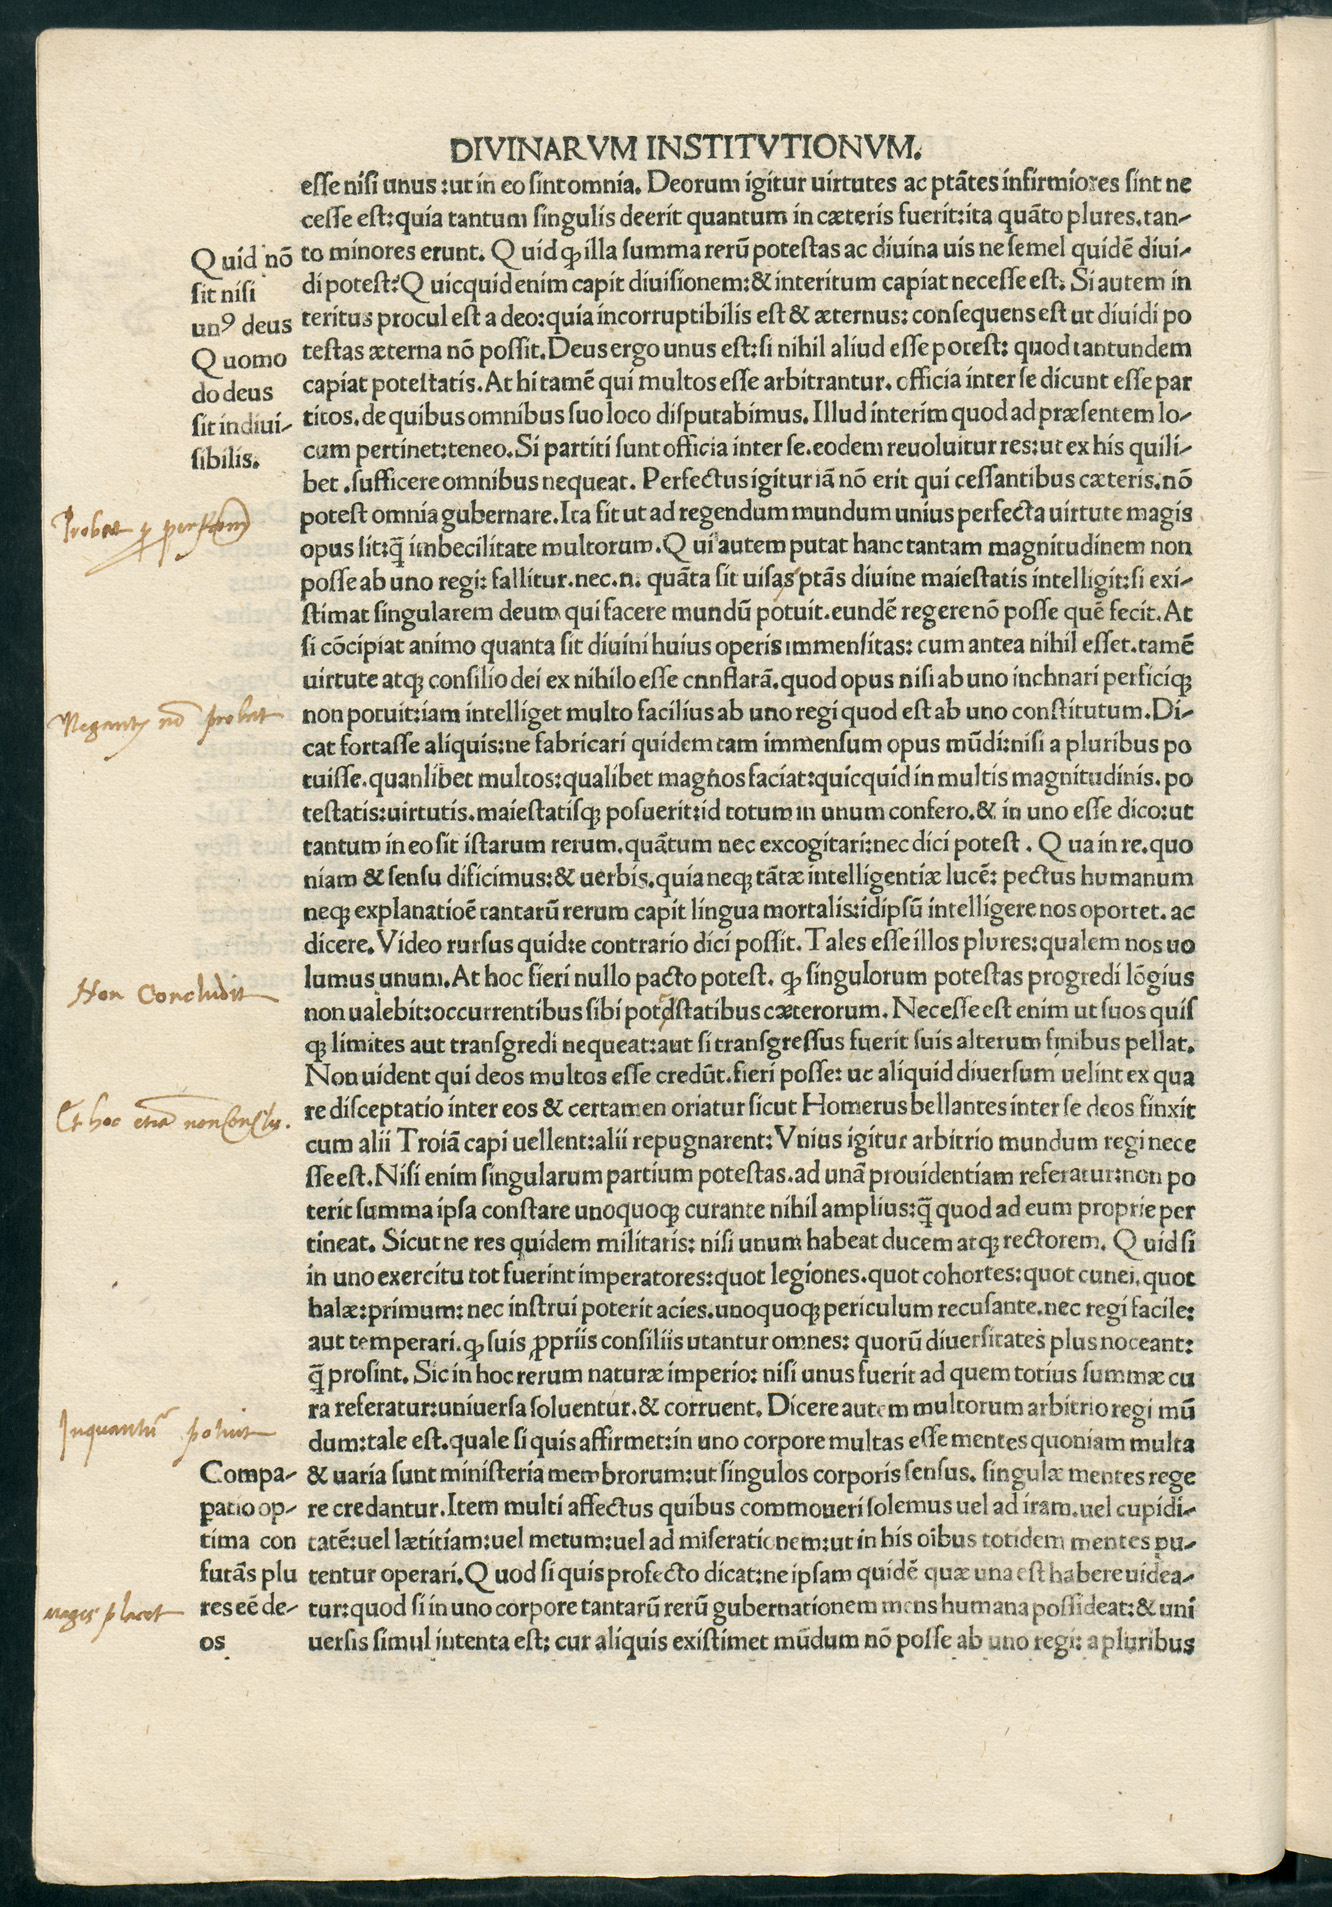 DIVINARVM INSTITVTIONVM.
esse nisi unus:ut in eo sint omnia. Deorum igitur uirtutes ac ptātes infirmiores sint ne
cesse est:quia tantum singulis deerit quantum in cæteris fuerit:ita quāto plures.tan-
to minores erunt. Quid ꝙ illa summa rerū potestas ac diuina uis ne semel quidē diui-
di potest?Quicquid enim capit diuisionem:& interitum capiat necesse est. Si autem in
teritus procul est a deo:quia incorruptibilis est & æternus: consequens est ut diuidi po
testas æterna nō possit.Deus ergo unus est:si nihil aliud esse potest: quod tantundem
capiat potestatis.At hi tamē qui multos esse arbitrantur. officia inter se dicunt esse par
titos.de quibus omnibus suo loco disputabimus. Illud interim quod ad præsentem lo-
cum pertinet:teneo.Si partiti sunt officia inter se.eodem reuoluitur res:ut ex his quili-
bet .sufficere omnibus nequeat. Perfectus igitur iā nō erit qui cessantibus cæteris.nō
potest omnia gubernare.Ita fit ut ad regendum mundum unius perfecta uirtute magis
opus sit:q̄ imbecilitate multorum.Qui autem putat hanc tantam magnitudinem non
posse ab uno regi: fallitur.nec.n. quāta sit uisas ptās diuine maiestatis intelligit:si exi-
stimat singularem deum qui facere mundū potuit.eundē regere nō posse quē fecit.At
si cōcipiat animo quanta sit diuini huius operis immensitas: cum antea nihil esset.tamē
uirtute atqꝫ consilio dei ex nihilo esse cnnflatā.quod opus nisi ab uno inchnari perficiqꝫ
non potuit:iam intelliget multo facilius ab uno regi quod est ab uno constitutum.Di-
cat fortasse aliquis:ne fabricari quidem tam immensum opus mūdi:nisi a pluribus po
tuisse.quanlibet multos:qualibet magnos faciat:quicquid in multis magnitudinis. po
testatis:uirtutis.maiestatisqꝫ posuerit:id totum in unum confero.& in uno esse dico:ut
tantum in eo sit istarum rerum.quātum nec excogitari:nec dici potest . Qua in re.quo
niam & sensu dificimus:& uerbis.quia neqꝫ tātæ intelligentiæ lucē: pectus humanum
neqꝫ explanatioē tantarū rerum capit lingua mortalis:idipsū intelligere nos oportet. ac
dicere.Video rursus quid:e contrario dici possit.Tales esse illos plures:qualem nos uo
lumus unum.At hoc fieri nullo pacto potest. ꝙ singulorum potestas progredi lōgius
non ualebit:occurrentibus sibi potestatibus cæterorum.Necesse est enim ut suos quis
qꝫ limites aut transgredi nequeat:aut si transgressus fuerit suis alterum finibus pellat.
Non uident qui deos multos esse credūt.fieri posse: ut aliquid diuersum uelint ex qua
re disceptatio inter eos & certamen oriatur sicut Homerus bellantes inter se deos finxit
cum alii Troiā capi uellent:alii repugnarent:Vnius igitur arbitrio mundum regi nece
sse est.Nisi enim singularum partium potestas.ad unā prouidentiam referatur:non po
terit summa ipsa constare unoquoqꝫ curante nihil amplius:q̄ quod ad eum proprie per
tineat. Sicut ne res quidem militaris: nisi unum habeat ducem atqꝫ rectorem. Quid si
in uno exercitu tot fuerint imperatores:quot legiones.quot cohortes:quot cunei.quot
halæ:primum: nec instrui poterit acies.unoquoqꝫ periculum recusante.nec regi facile:
aut temperari.ꝙ suis ꝓpriis consiliis utantur omnes: quorū diuersitates plus noceant:
q̄ prosint. Sic in hoc rerum naturæ imperio: nisi unus fuerit ad quem totius summæ cu
ra referatur:uniuersa soluentur.& corruent. Dicere autem multorum arbitrio regi mū
dum:tale est.quale si quis affirmet:in uno corpore multas esse mentes quoniam multa
& uaria sunt ministeria membrorum:ut singulos corporis sensus. singulæ mentes rege
re credantur.Item multi affectus quibus commoueri solemus uel ad iram.uel cupidi-
tatē:uel lætitiam:uel metum:uel ad miserationem:ut in his oibus totidem mentes pu-
tentur operari.Quod si quis profecto dicat:ne ipsam quidē quæ una est habere uidea-
tur:quod si in uno corpore tantarū rerū gubernationem mens humana possideat:& uni
uersis simul intenta est: cur aliquis existimet mūdum nō posse ab uno regi: a pluribus
Quid nō
sit nisi
unꝰ deus
Quomo
do deus
sit indiui-
sibilis.
Probat
Negantis nō probat
Non Concludit
Et hoc etiā non
Inquantū potuit
Compa-
patio op-
tima con
futās plu
res eē de-
os
magis placet